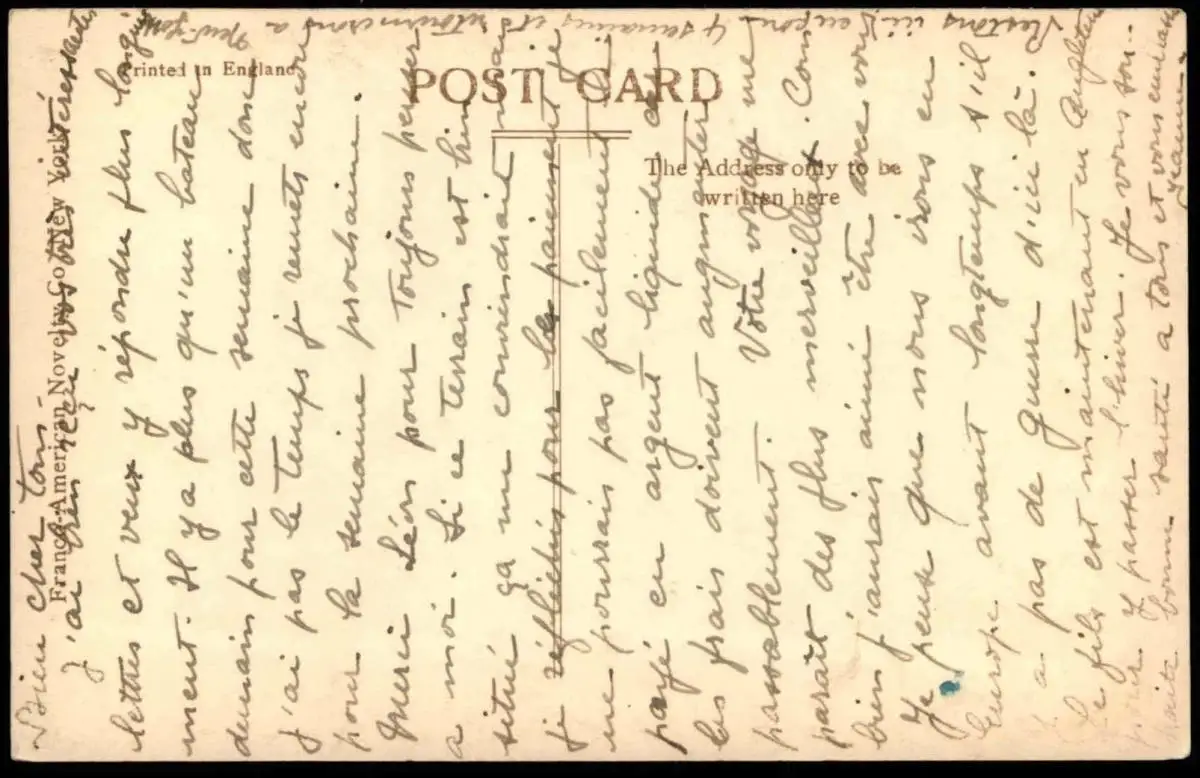 Printed in England
POST CARD
The Address only to be
written here
Franco-American Novelty Co. New York.
Bien cher tous -
J'ai bien reçu vos très intéressantes
lettres et veux y répondre plus longue
ment. Il y a plus qu'un bateau
demain pour cette semaine donc
j'ai pas le temps je remets encore
pour la semaine prochaine.
Merci Léon pour toujours penser
a moi. Si ce terrain est bien
situé ça me conviendrait mais
je réfléchis pour les paiements je
ne pourrais pas facilement
payé en argent liquide et
les frais doivent augmenter
passablement. Votre voyage me
paraît des plus merveilleux. Com
bien j'aurais aimé être avec vous
Je pense que nous irons en
Europe avant longtemps s'il
y a pas de guerre d'ici là.
Le fils est maintenant en Angleterre
pour y passer l'hiver. Je vous sou-
haite bonne santé a tous et vous embrasse
Jeanne
Restons ici encore 4 semaines et retournerons a New-York